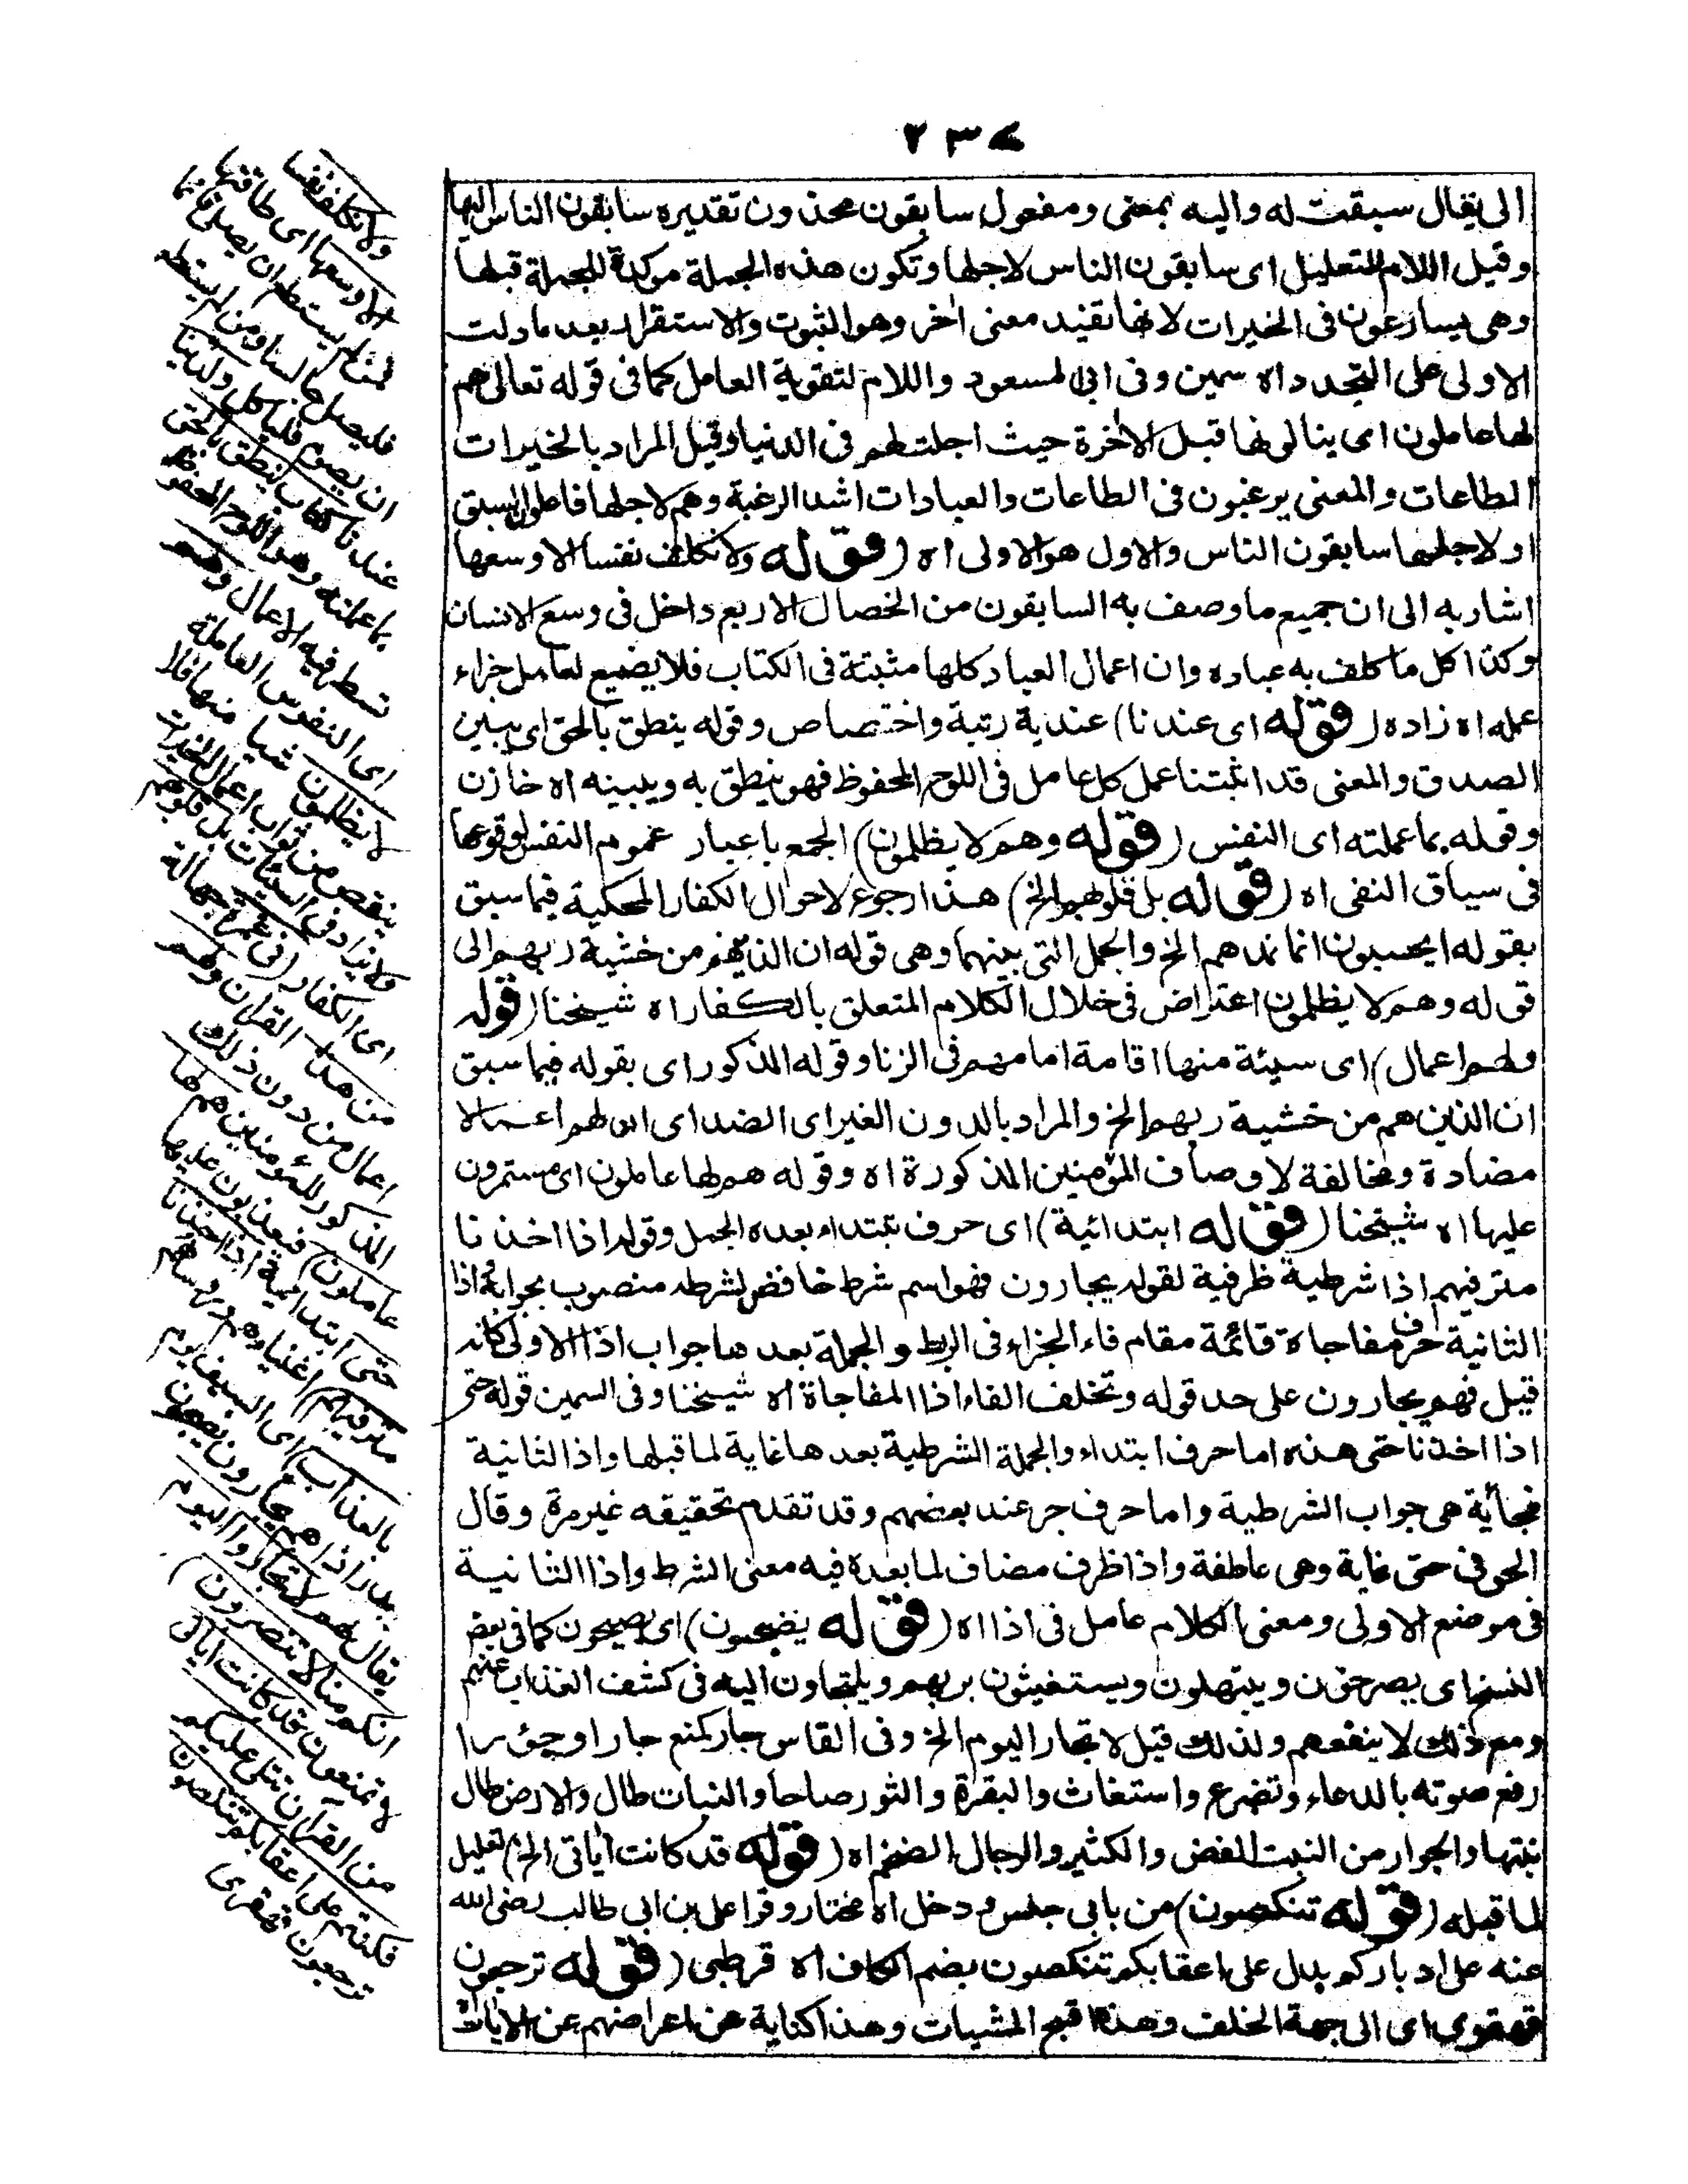 ٢٣٧
الى يقال سبقت له واليه بمعنى ومفعول سابقون محذوف تقديره سابقون الناس اليها
وقيل اللام للتعليل اى سابقون الناس لاجلها وتكون هذه الجملة موكدة للجملة قبلها
وهى يسارعون فى الخيرات لانها تفيد معنى اخر وهو الثبوت والاستقرار بعد مادلت
الاولى على التجدد اه سمين وفى ابى لمسعود واللام لتقوية العامل كما فى قوله تعالى هم
لها عاملون اى ينالونها قبل الاخرة حيث اجلت لهم فى الدنيا وقيل المراد بالخيرات
الطاعات والمعنى يرغبون فى الطاعات والعبادات اشد الرغبة وهم لاجلها فاعلون السبق
اولاجلها سابقون الناس والاول هوالاولى اه (قوله ولا نكلف نفسا الا وسعها
اشار به الى ان جميع ما وصف به السابقون من الخصال الاربع داخل فى وسع الانسان
وكذا كل ما كلف به عباده وان اعمال العباد كلها مثبتة فى الكتاب فلا يضيع لعامل جزاء
عمله اه زاده (قوله اى عندنا) عندية رتبة واختصاص وقوله ينطق بالحق اى يبين
الصدق والمعنى قد اثبتنا عمل كل عامل فى اللوح المحفوظ فهو ينطق به ويبينه اه خازن
وقوله بما عملته اى النفس (قوله وهم لا يظلمون) الجمع باعبار عموم النفس لوقوعها
فى سياق النفى اه (قوله بل قلوبهم الخ) هذا رجوع لاحوال الكفار المحكية فيما سبق
بقوله ايحسبون انما نمدهم الخ والجمل التى بينهما وهى قوله ان الذين هم من خشية ربهم الى
قوله وهم لا يظلمون اعتراض فى خلال الكلام المتعلق بالكفار اه شيخنا (قوله
ولهم اعمال) اى سيئة منها اقامة امامهم فى الزنا وقوله المذكور اى بقوله فيما سبق
ان الذين هم من خشية ربهم الخ والمراد بالدون الغير اى الضد اى ان لهم اعمالا
مضادة ومخالفة لاوصاف المؤمنين المذكورة اه وقوله هم لها عاملون اى مستمرون
عليها اه شيخنا (قوله ابتدائية) اى حرف تبتداء بعده الجمل وقوله اذا اخذنا
مترفيهم اذا شرطية ظرفية لقوله يجارون فهو اسم شرط خافض لشرطه منصوب بجوابه اذا
الثانية حرف مفاجاة قائمة مقام فاء الجزاء فى الربط والجملة بعدها جواب اذا الاولى كانه
قيل فهم يجارون على حد قوله وتخلف الفاء اذا المفاجاة اه شيخنا وفى السمين قوله حتى
اذا اخذنا حتى هذه اما حرف ابتداء والجملة الشرطية بعدها غاية لما قبلها واذا الثانية
فجائية هى جواب الشرطية واما حرف جر عند بعضهم وقد تقدم تحقيقه غير مرة وقال
الحوفى حتى غاية وهى عاطفة واذا ظرف مضاف لما بعده فيه معنى الشرط واذا الثانية
فى موضع الاولى ومعنى الكلام عامل فى اذا اه (قوله يضجون) اى يصيحون كما فى بعض
النسخ اى يصرخون ويبتهلون ويستغيثون بربهم ويلتجاون اليه فى كشف العذاب عنهم
ومع ذلك لا ينفعهم ولذلك قيل لا تجاروا اليوم الخ وفى القاس جار كمنع جارا وجؤرا
رفع صوته بالدعاء وتضرع واستغاث والبقرة والثور صاحا والنبات طال والارض طال
نبتها والجوار من النبت الغض والكثير والرجال الضخم اه (قوله قد كانت اياتى الخ) تعليل
لما قبله (قوله تنكصون) من بابى جلس ودخل اه مختار وقرا على بن ابى طالب رضى الله
عنه على ادباركم بدل على اعقابكم تنكصون بضم الكاف اه قرطبى (قوله ترجعون
قهقرى اى الى جهة الخلف وهذا اقبح المشيات وهذا كناية عن اعراضهم عن الايات
ولا نكلف نفسا
الا وسعها اى طاقتها
فمن لم يستطع ان يصلى قائما
فليصل جالسا ومن لم يستطع
ان يصوم فلياكل ولدينا
عندنا كتاب ينطق بالحق
بما عملته وهو اللوح المحفوظ
تسطر فيه الاعمال وهم
اى النفوس العاملة
لا يظلمون شيا منها فلا
ينقص من ثواب اعمال الخيرات
ولا يزاد فى السيئات بل قلوبهم
اى الكفار (فى غمرة) جهالة
من هذا القران ولهم
اعمال من دون ذلك
المذكور للمؤمنين هم لها
عاملون) فيعذبون عليها
حتى ابتدائية اذا اخذنا
مترفيهم) اغنياءهم وروساهم
بالعذاب) اى السيف يوم
بدر اذا هم يجارون يضجون
يقال لهم لا تجاروا اليوم
انكم منا لا تنصرون)
لا تمنعون قد كانت اياتى
من القران تتلى عليكم
فكنتم على اعقابكم تنكصون
ترجعون قهقرى